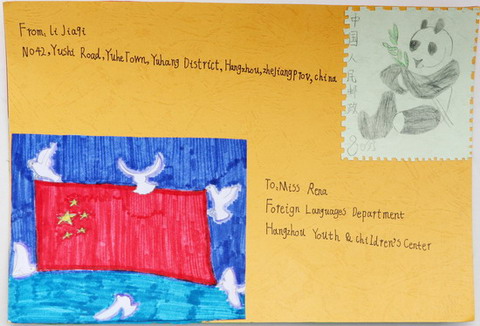 From, Li Jiaqi
No42, Yushi Road, YuheTown, Yuhang District, Hangzhou, zhejiangProv, china
中国人民邮政
To, Miss Rena
Foreign Languages Department
Hangzhou Youth & children's Center